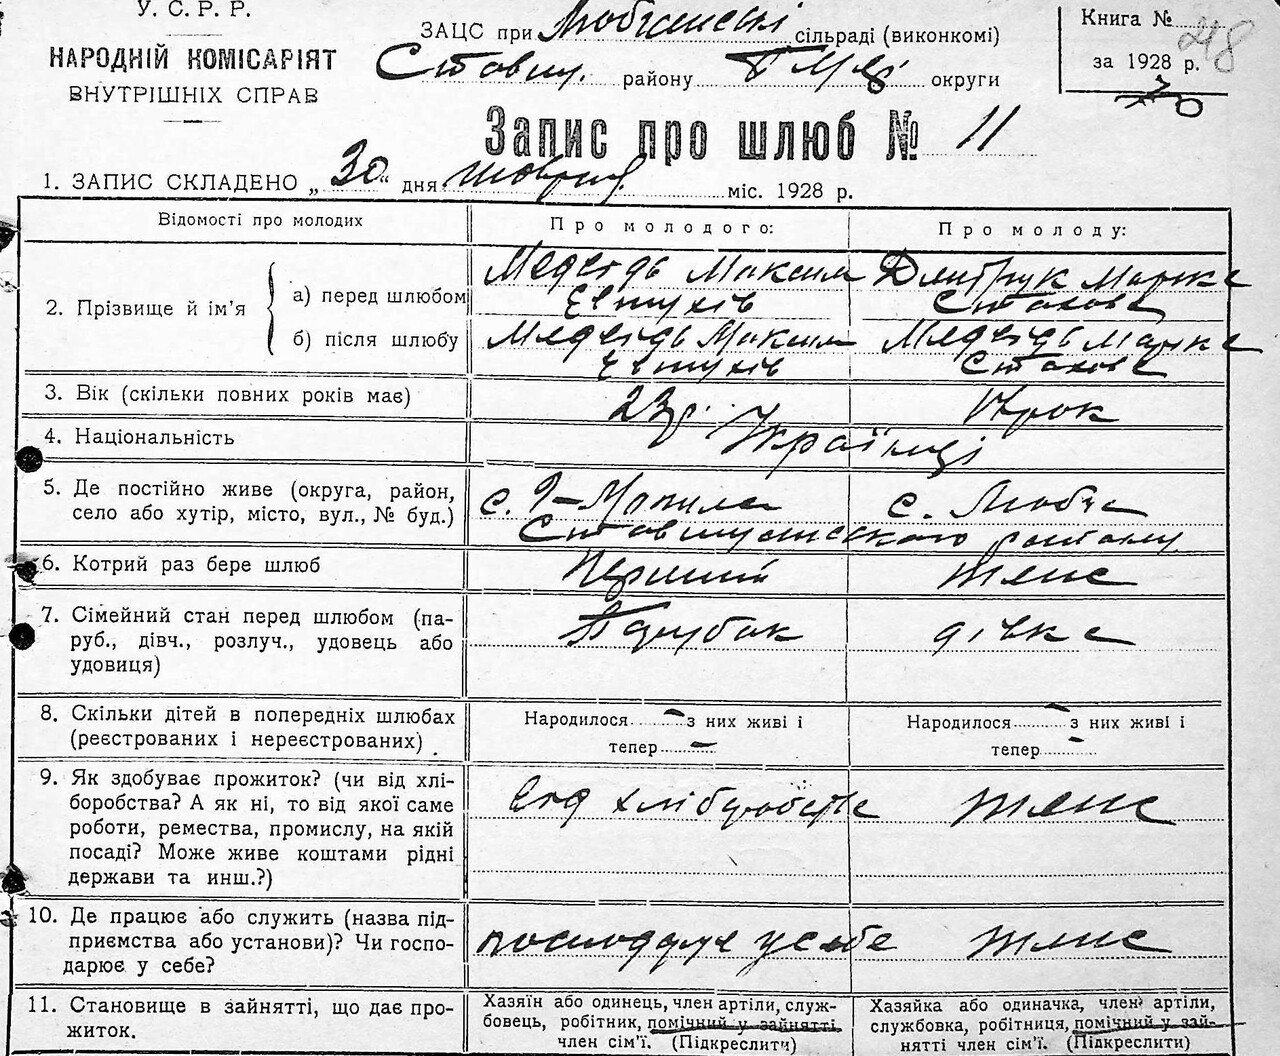 У. С. Р. Р.
НАРОДНІЙ КОМІСАРІЯТ
ВНУТРІШНІХ СПРАВ
ЗАЦС при сільраді (виконкомі)
району округи
Книга № 48
за 1928 р.
Запис про шлюб № 11
1. ЗАПИС СКЛАДЕНО „30“ дня жовтня міс. 1928 р.
Відомості про молодих
Про молодого:
Про молоду:
2. Прізвище й ім'я
а) перед шлюбом
Медведь Максим
Евтухів
Дмитрук Марка
Стахова
б) після шлюбу
Медведь Максим
Евтухів
Медведь Марка
Стахова
3. Вік (скільки повних років має)
23 р.
рок
4. Національність
Українці
5. Де постійно живе (округа, район,
село або хутір, місто, вул., № буд.)
с.
с.
6. Котрий раз бере шлюб
Перший
теж
7. Сімейний стан перед шлюбом (па-
руб., дівч., розлуч., удовець або
удовиця)
Парубок
дівка
8. Скільки дітей в попередніх шлюбах
(реєстрованих і нереєстрованих)
Народилося – з них живі і
тепер –
Народилося – з них живі і
тепер –
9. Як здобуває прожиток? (чи від хлі-
боробства? А як ні, то від якої саме
роботи, ремества, промислу, на якій
посаді? Може живе коштами рідні
держави та инш.?)
від хліборобства
10. Де працює або служить (назва під-
приємства або установи)? Чи госпо-
дарює у себе?
господарює у себе
11. Становище в зайнятті, що дає про-
житок.
Хазяїн або одинець, член артіли, служ-
бовець, робітник, помічний у зайнятті
член сім'ї. (Підкреслити)
Хазяйка або одиначка, член артіли,
службовка, робітниця, помічний у зай-
нятті член сім'ї. (Підкреслити)